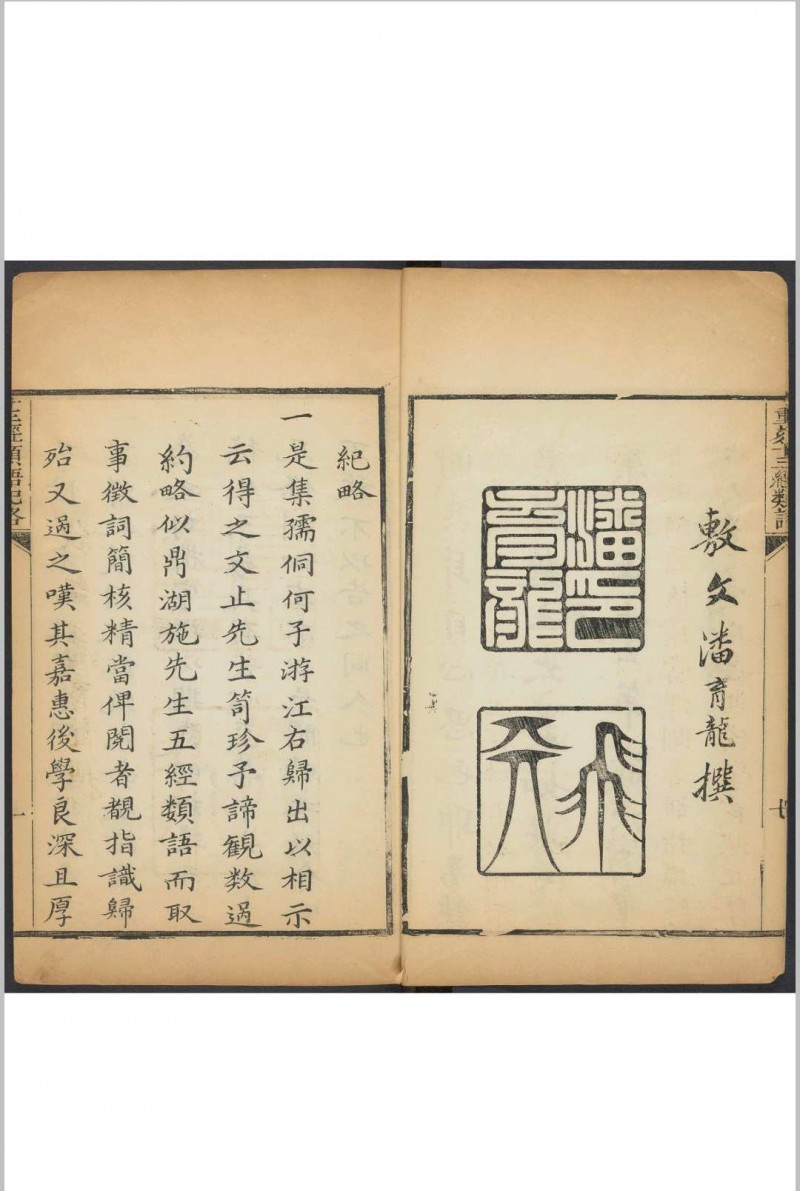 重刻十三經類語
敷文潘育龍撰
潘印育龍
飛天
七
紀略
一是集孺侗何子游江右歸出以相示
云得之文止先生笥珍予諦觀數過
約略似鼎湖施先生五經類語而取
事徵詞簡核精當俾閱者覩指識歸
殆又過之嘆其嘉惠後學良深且厚
十三經類語紀略
一